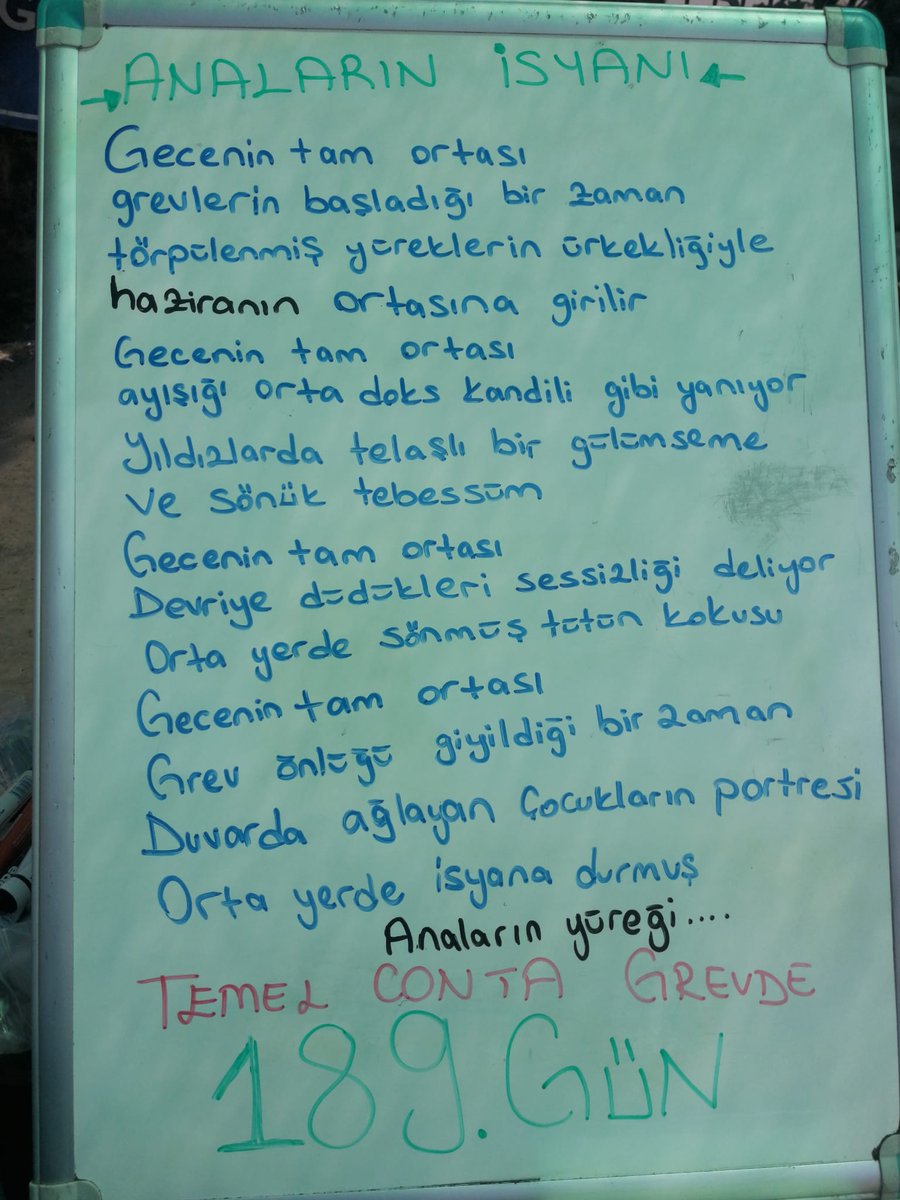 →ANALARIN İSYANI←
Gecenin tam ortası
grevlerin başladığı bir zaman
törpülenmiş yüreklerin ürkekliğiyle
haziranın ortasına girilir
Gecenin tam ortası
ayışığı orta doks kandili gibi yanıyor
Yıldızlarda telaşlı bir gülümseme
ve sönük tebessüm
Gecenin tam ortası
Devriye düdükleri sessizliği deliyor
Orta yerde sönmüş tütün kokusu
Gecenin tam ortası
Grev önlüğü giyildiği bir zaman
Duvarda ağlayan çocukların portresi
Orta yerde isyana durmuş
Anaların yüreği....
TEMEL CONTA GREVDE
189. GÜN